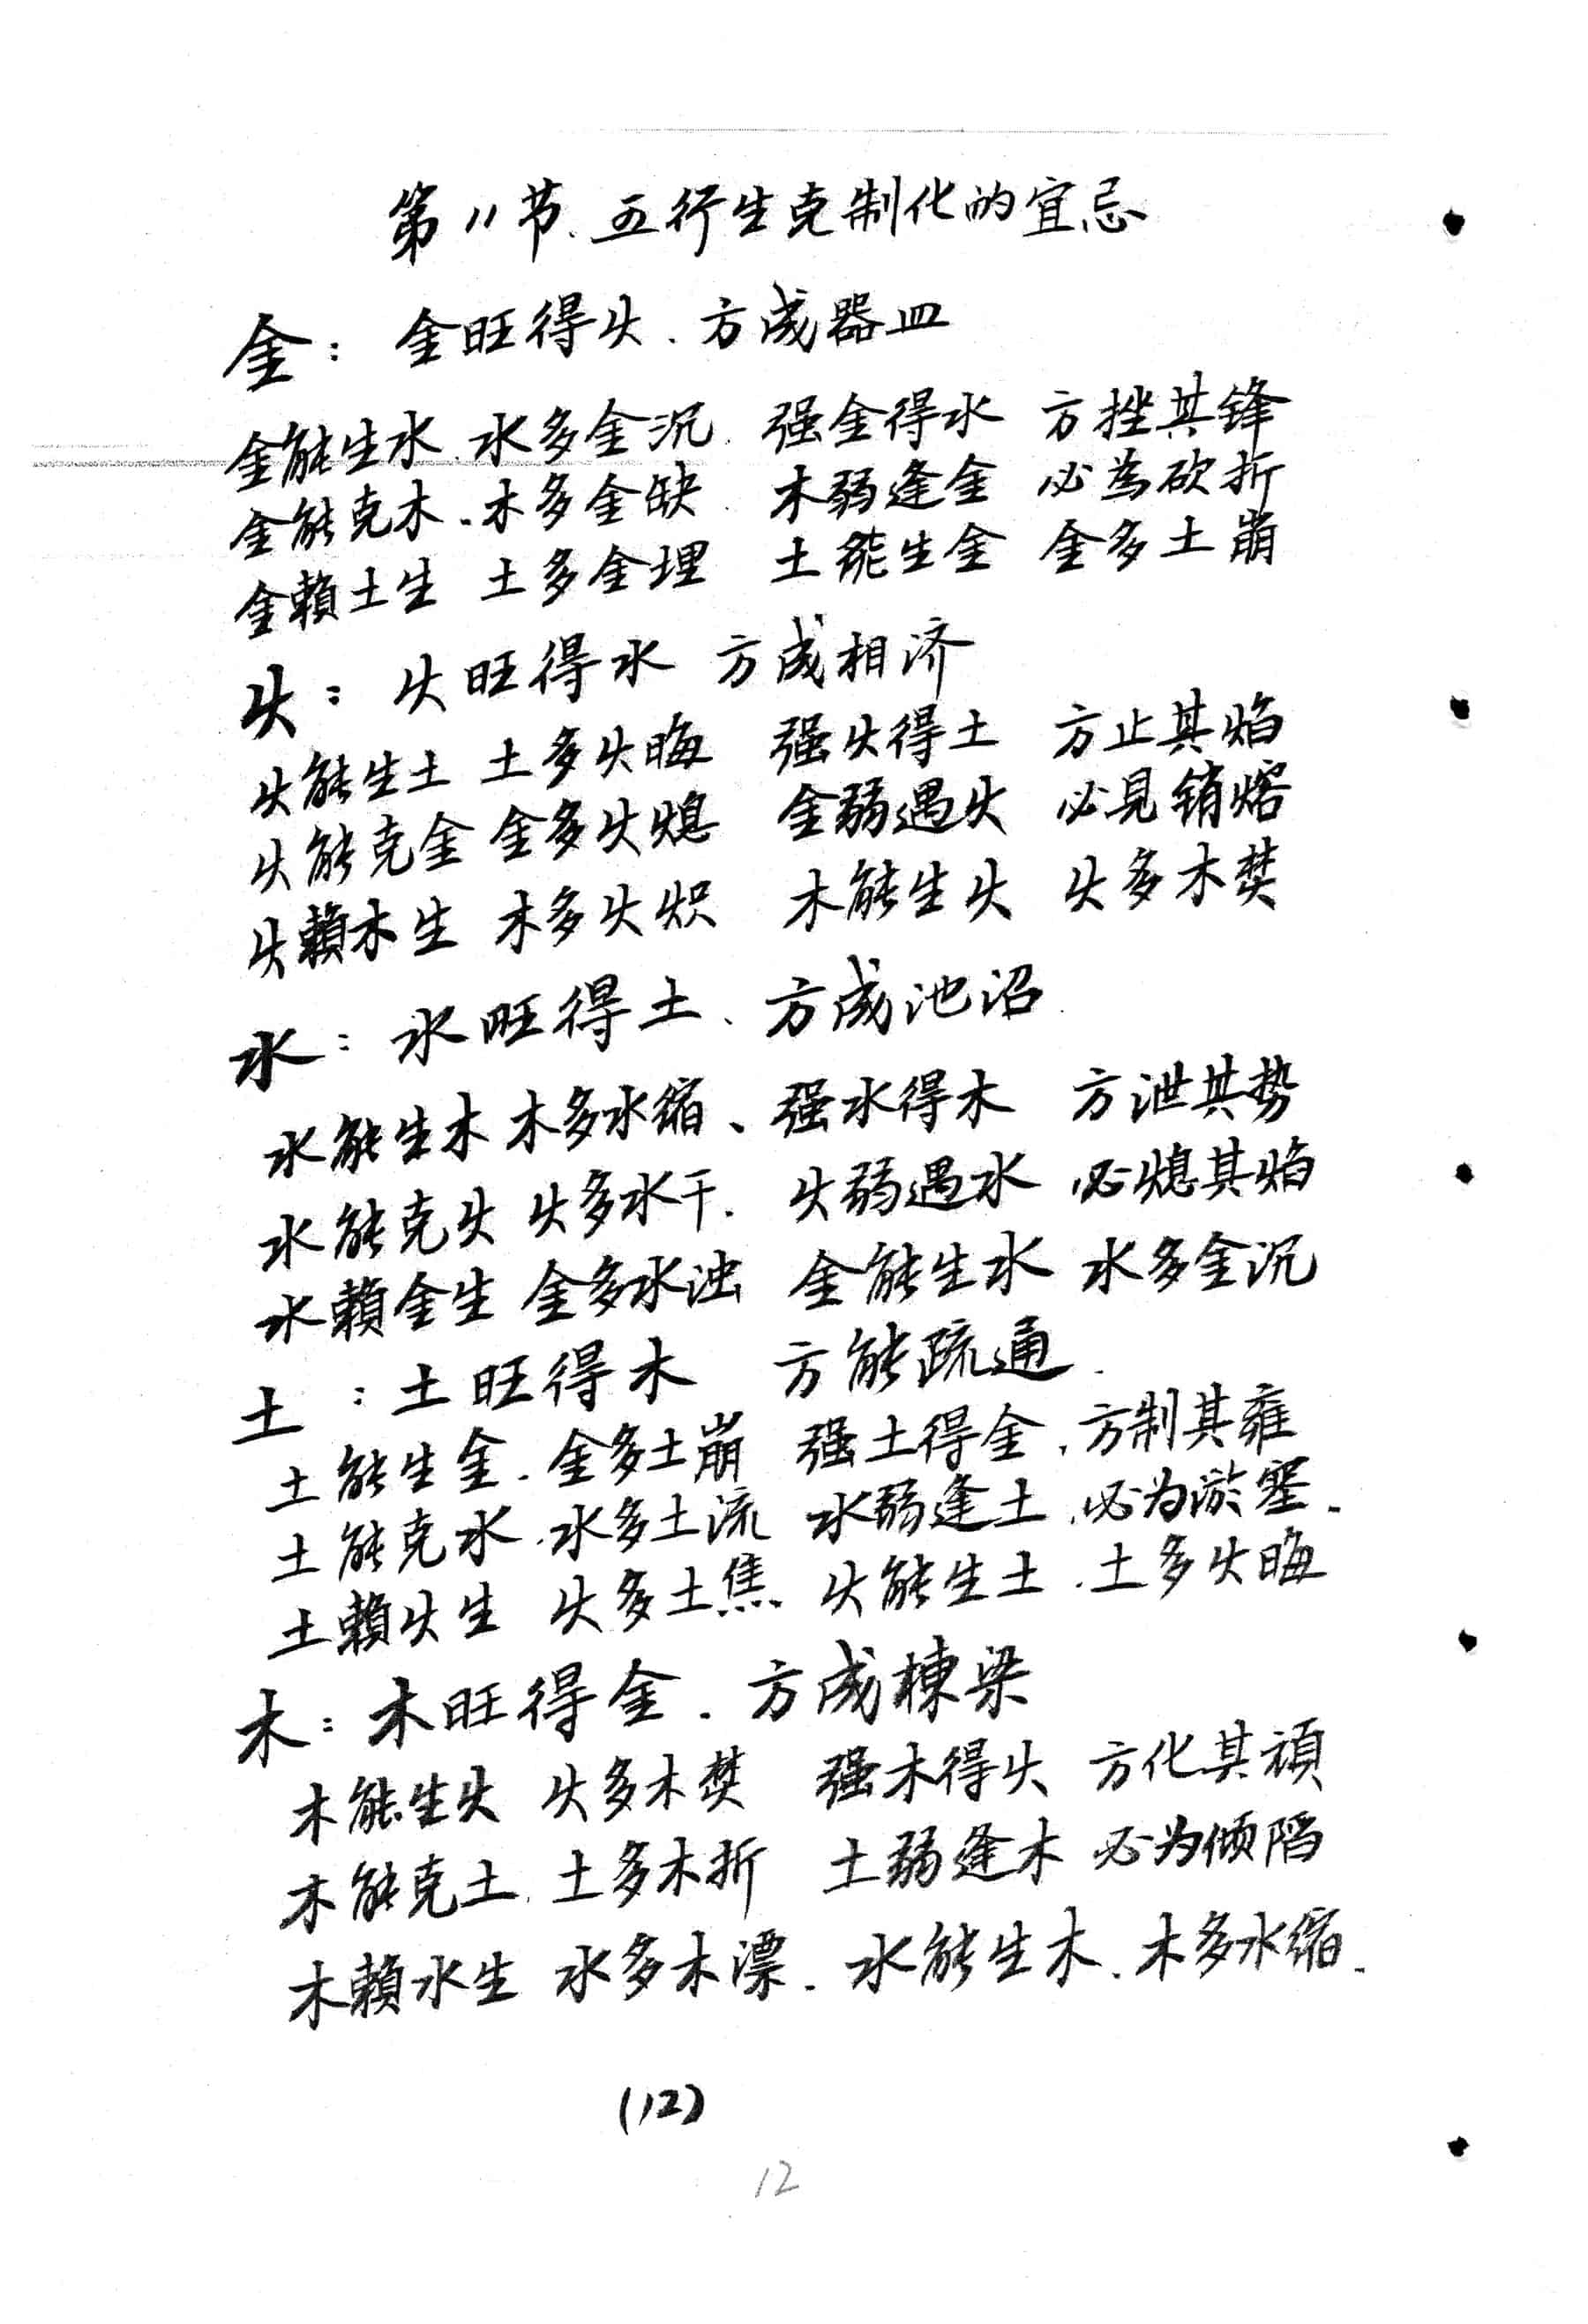 第11节、五行生克制化的宜忌
金：金旺得火、方成器皿
金能生水、水多金沉、强金得水 方挫其锋
金能克木、木多金缺 木弱逢金 必為砍折
金賴土生 土多金埋 土能生金 金多土崩
火：火旺得水 方成相济
火能生土 土多火晦 强火得土 方止其焰
火能克金 金多火熄 金弱遇火 必見销熔
火賴木生 木多火炽 木能生火 火多木焚
水：水旺得土、方成池沼
水能生木 木多水缩、强水得木 方泄其势
水能克火 火多水干. 火弱遇水 必熄其焰
水賴金生 金多水浊 金能生水 水多金沉
土：土旺得木 方能疏通.
土能生金、金多土崩 强土得金、方制其壅
土能克水、水多土流 水弱逢土、必为淤塞.
土賴火生 火多土焦、火能生土、土多火晦
木：木旺得金. 方成棟梁
木能生火 火多木焚 强木得火 方化其頑
木能克土、土多木折 土弱逢木 必为倾陷
木賴水生 水多木漂. 水能生木、木多水缩.
(12)
12